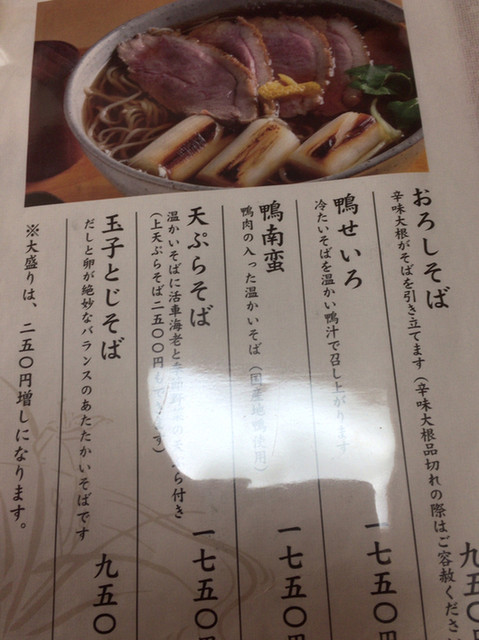 おろしそば
辛味大根がそばを引き立てます(辛味大根品切れの際はご容赦くださ
九五〇
鴨せいろ
冷たいそばを温かい鴨汁で召し上がります
一七五〇
鴨南蛮
鴨肉の入った温かいそば(国産地鴨使用)
一七五〇円
天ぷらそば
温かいそばに活車海老と野 の天ぷら付き
(上天ぷらそば二五〇〇円もでます)
一七五〇円
玉子とじそば
だしと卵が絶妙なバランスのあたたかいそばです
九五〇
※大盛りは、二五〇円増しになります。